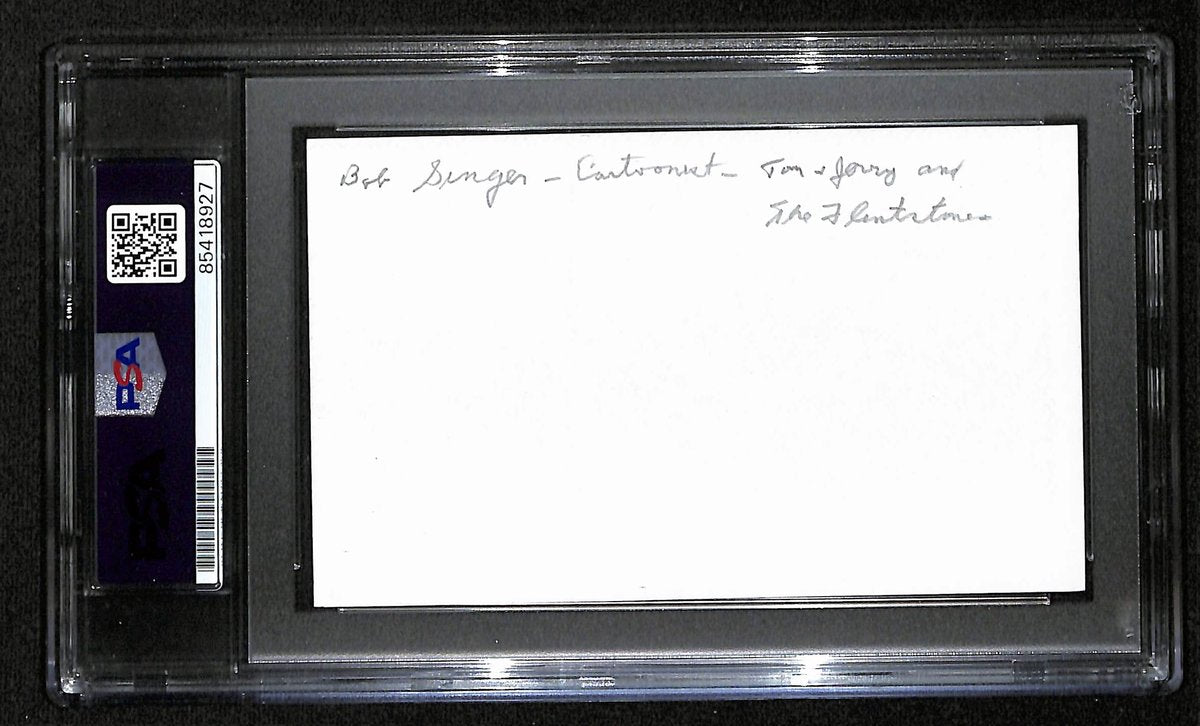 Bob Singer - Cartoonist - Tom & Jerry and
The Flintstones
85418927
PSA
PSA